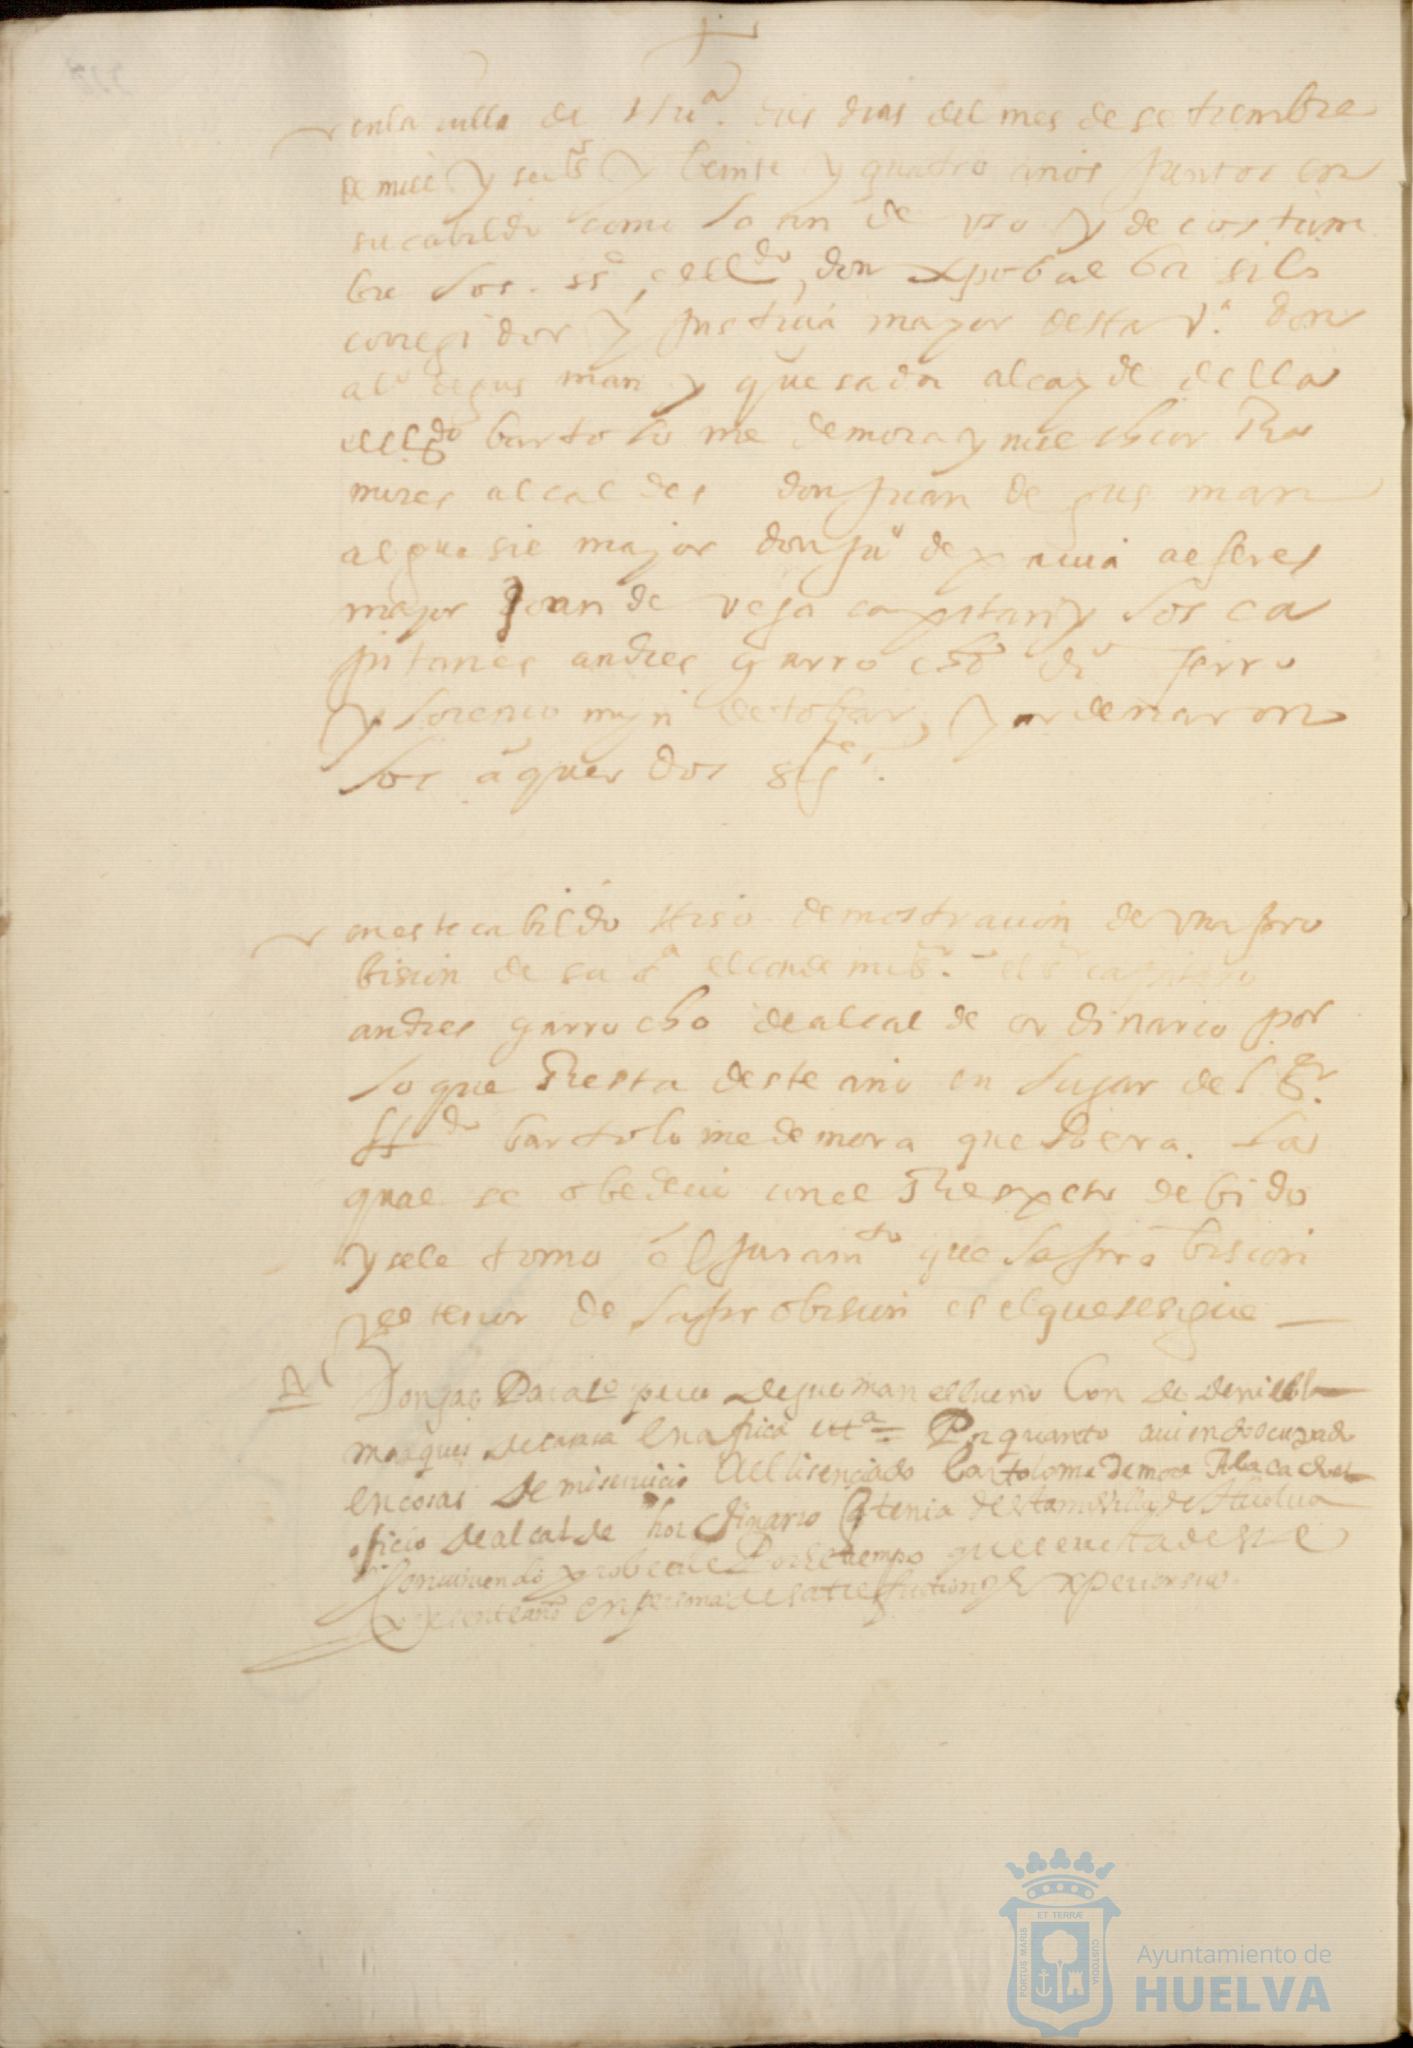 en la villa de Hua. dies dias del mes de setiembre
de mill y seisos y beinte y quatro años juntos en
su cabildo como lo an de uso y de costum
bre los. sses, el ldo, don xpobal ba silo
corregidor y justicia mayor desta va. don
alo de gus man y quesada alcayde della
el ldo bartolo me de mora y mel chior Ra
mires alcal des don juan de gus man
alguasil major don juo de alferes
major joan de vega capitan y los ca
pitanes andres garro cho
y lorenço de tobar, y ordenaron
los aquer dos sigtes.
en este cabildo Hiso demostracion de vna pro
bision de su sa el conde mi sr. el sr capitan
andres garrocho de alcal de or dinario por
lo que Resta deste año en lugar del sr.
lldo bartolo me de mora que lo era. la
qual se obedecio con el Respecto debido
y se le tomo el juramto que la pro bision
y el tenor de la probision es el que se sigue
Don gas par alo peres de guzman el bueno Conde de niebla
marques de casasa en africa etta = Por quanto auiendo ocupado
en cosas de mi seruicio Al lisenciado Bartolome de mora
oficio de alcalde hordinario q tenia de esta mi villa de Huelua
conuiniendo probeerle Por el tiempo que resta deste
presente año en persona de satisfaction y experiensia.
PORTUS MARIS
ET TERRÆ
CUSTODIA
Ayuntamiento de
HUELVA